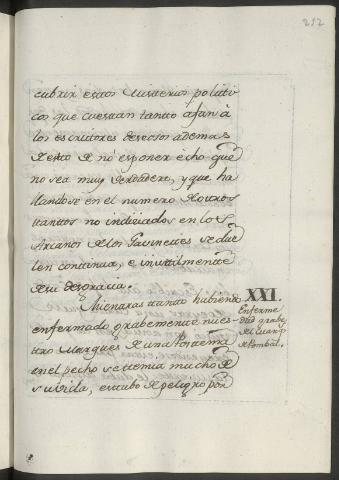 212
cubrir estos Misterios politi-
cos que cuestan tantto afan à
los escrittores deseosos ademas
de esto de no esponer echo que
no sea muy verdadero, y que ha
llandose en el numero de otros
ttanttos no indiciados en los
Arcanos de los Gavinettes se due
len continua, e inuttilmentte
de su desgracia.
Mientras ttanto habiend
enfermado grabementte nues-
ttro Marques de una Postema
en el pecho se ttemia mucho de
su vida, estubo de peligro por
XXI.
Enferme
dad grabe
del Marqs
de Pombal.